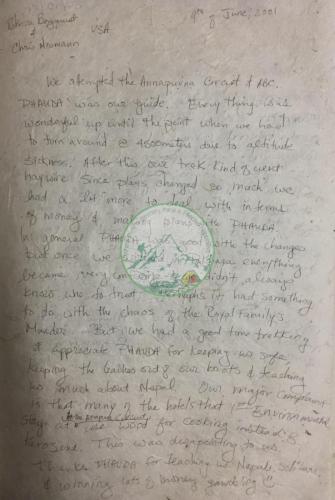 4th of June, 2001
&
Chris Neumann
USA
We attempted the Annapurna Circuit & ABC.
PHAUDA was our guide. Everything was
wonderful up until the point when we had
to turn around @ 4500meters due to altitude
sickness. After this our trek kind of went
haywire since plans changed so much we
had a lot more to deal with in terms
of money & making plans with PHAUDA.
In general PHAUDA was good with the changes
but once we everything
became very didn't always
know who to trust. Perhaps it had something
to do with the chaos of the Royal Family's
Murder. But we had a good time trekking
& appreciate PHAUDA for keeping us safe
keeping the and our & teaching
us much about Nepal. Our major complaint
is that many of the hotels that
stay at use wood for cooking instead of
kerosene. This was disappointing to us.
Thanks PHAUDA for teaching us Nepali,
& winning lots of money gambling!!